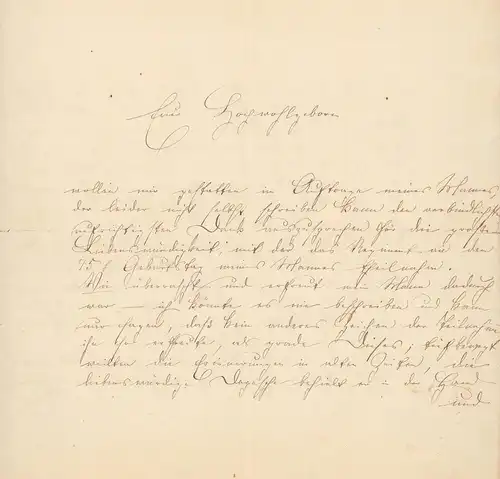 Euer Hochwohlgeboren
wollen mir gestatten im Auftrage meines Mannes,
der leider nicht selbst schreiben kann den verbindlichst
aufrichtigsten Dank auszusprechen für die große
Liebenswürdigkeit, mit der das Regiment an den
75t Geburtstag meines Mannes theilnahm.
Wie überrascht und erfreut mein Mann dadurch
war – ich könnte es nie beschreiben und kann
nur sagen, daß kein anderes Zeichen der Theilnahme
ihn so erfreute, als grade Dieses;
weilten die Erinnerungen in alten Zeiten, die
liebenswürdige Depesche behielt er in der Hand
und